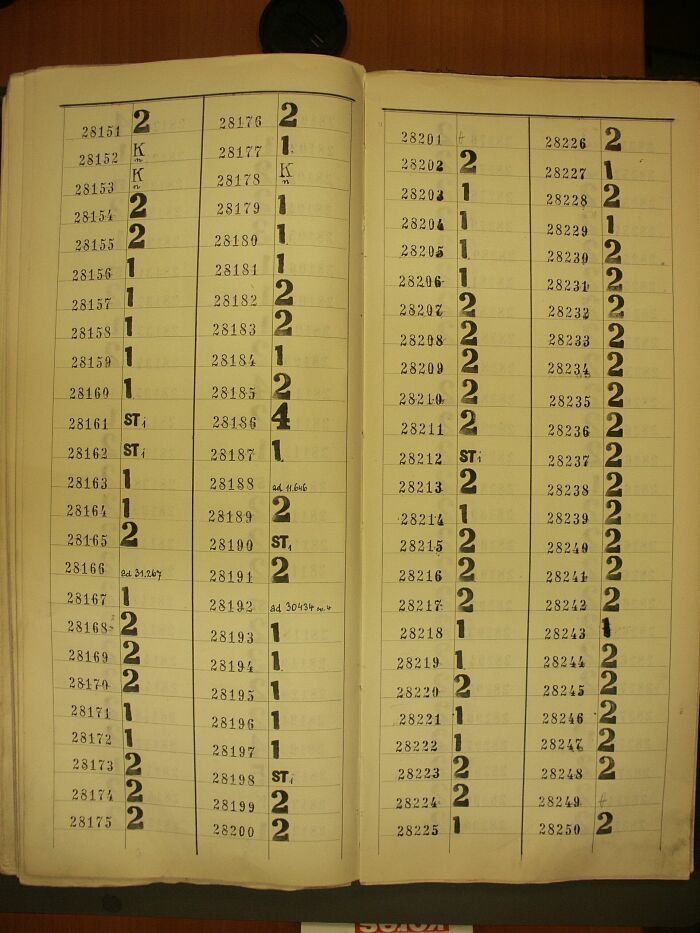 28151 2
28152 K n
28153 K n
28154 2
28155 2
28156 1
28157 1
28158 1
28159 1
28160 1
28161 ST i
28162 ST i
28163 1
28164 1
28165 2
28166 ad 31.267
28167 1
28168 2
28169 2
28170 2
28171 1
28172 1
28173 2
28174 2
28175 2
28176 2
28177 1
28178 K n
28179 1
28180 1
28181 1
28182 2
28183 2
28184 1
28185 2
28186 4
28187 1
28188 ad 11.646
28189 2
28190 ST i
28191 2
28192 ad 30434
28193 1
28194 1
28195 1
28196 1
28197 1
28198 ST i
28199 2
28200 2
28201
28202 2
28203 1
28204 1
28205 1
28206 1
28207 2
28208 2
28209 2
28210 2
28211 2
28212 ST i
28213 2
28214 1
28215 2
28216 2
28217 2
28218 1
28219 1
28220 2
28221 1
28222 1
28223 2
28224 2
28225 1
28226 2
28227 1
28228 2
28229 1
28230 2
28231 2
28232 2
28233 2
28234 2
28235 2
28236 2
28237 2
28238 2
28239 2
28240 2
28241 2
28242 2
28243 1
28244 2
28245 2
28246 2
28247 2
28248 2
28249
28250 2